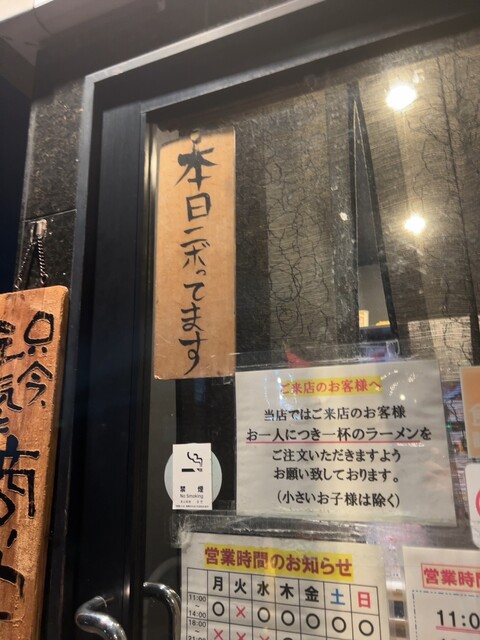 本日ニボってます
只今、
元気に
商い
ご来店のお客様へ
当店ではご来店のお客様
お一人につき一杯のラーメンを
ご注文いただきますよう
お願い致しております。
（小さいお子様は除く）
禁煙
No Smoking
営業時間のお知らせ
月 火 水 木 金 土 日
11:00
14:00
18:00
21:00
営業時
11:0